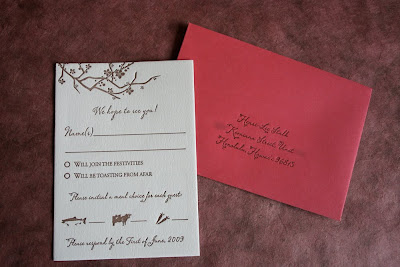 We hope to see you!
Name(s)
Will join the festivities
Will be toasting from afar
Please initial a meal choice for each guest:
Please respond by the First of June, 2009
Street
Honolulu, Hawaii 96815